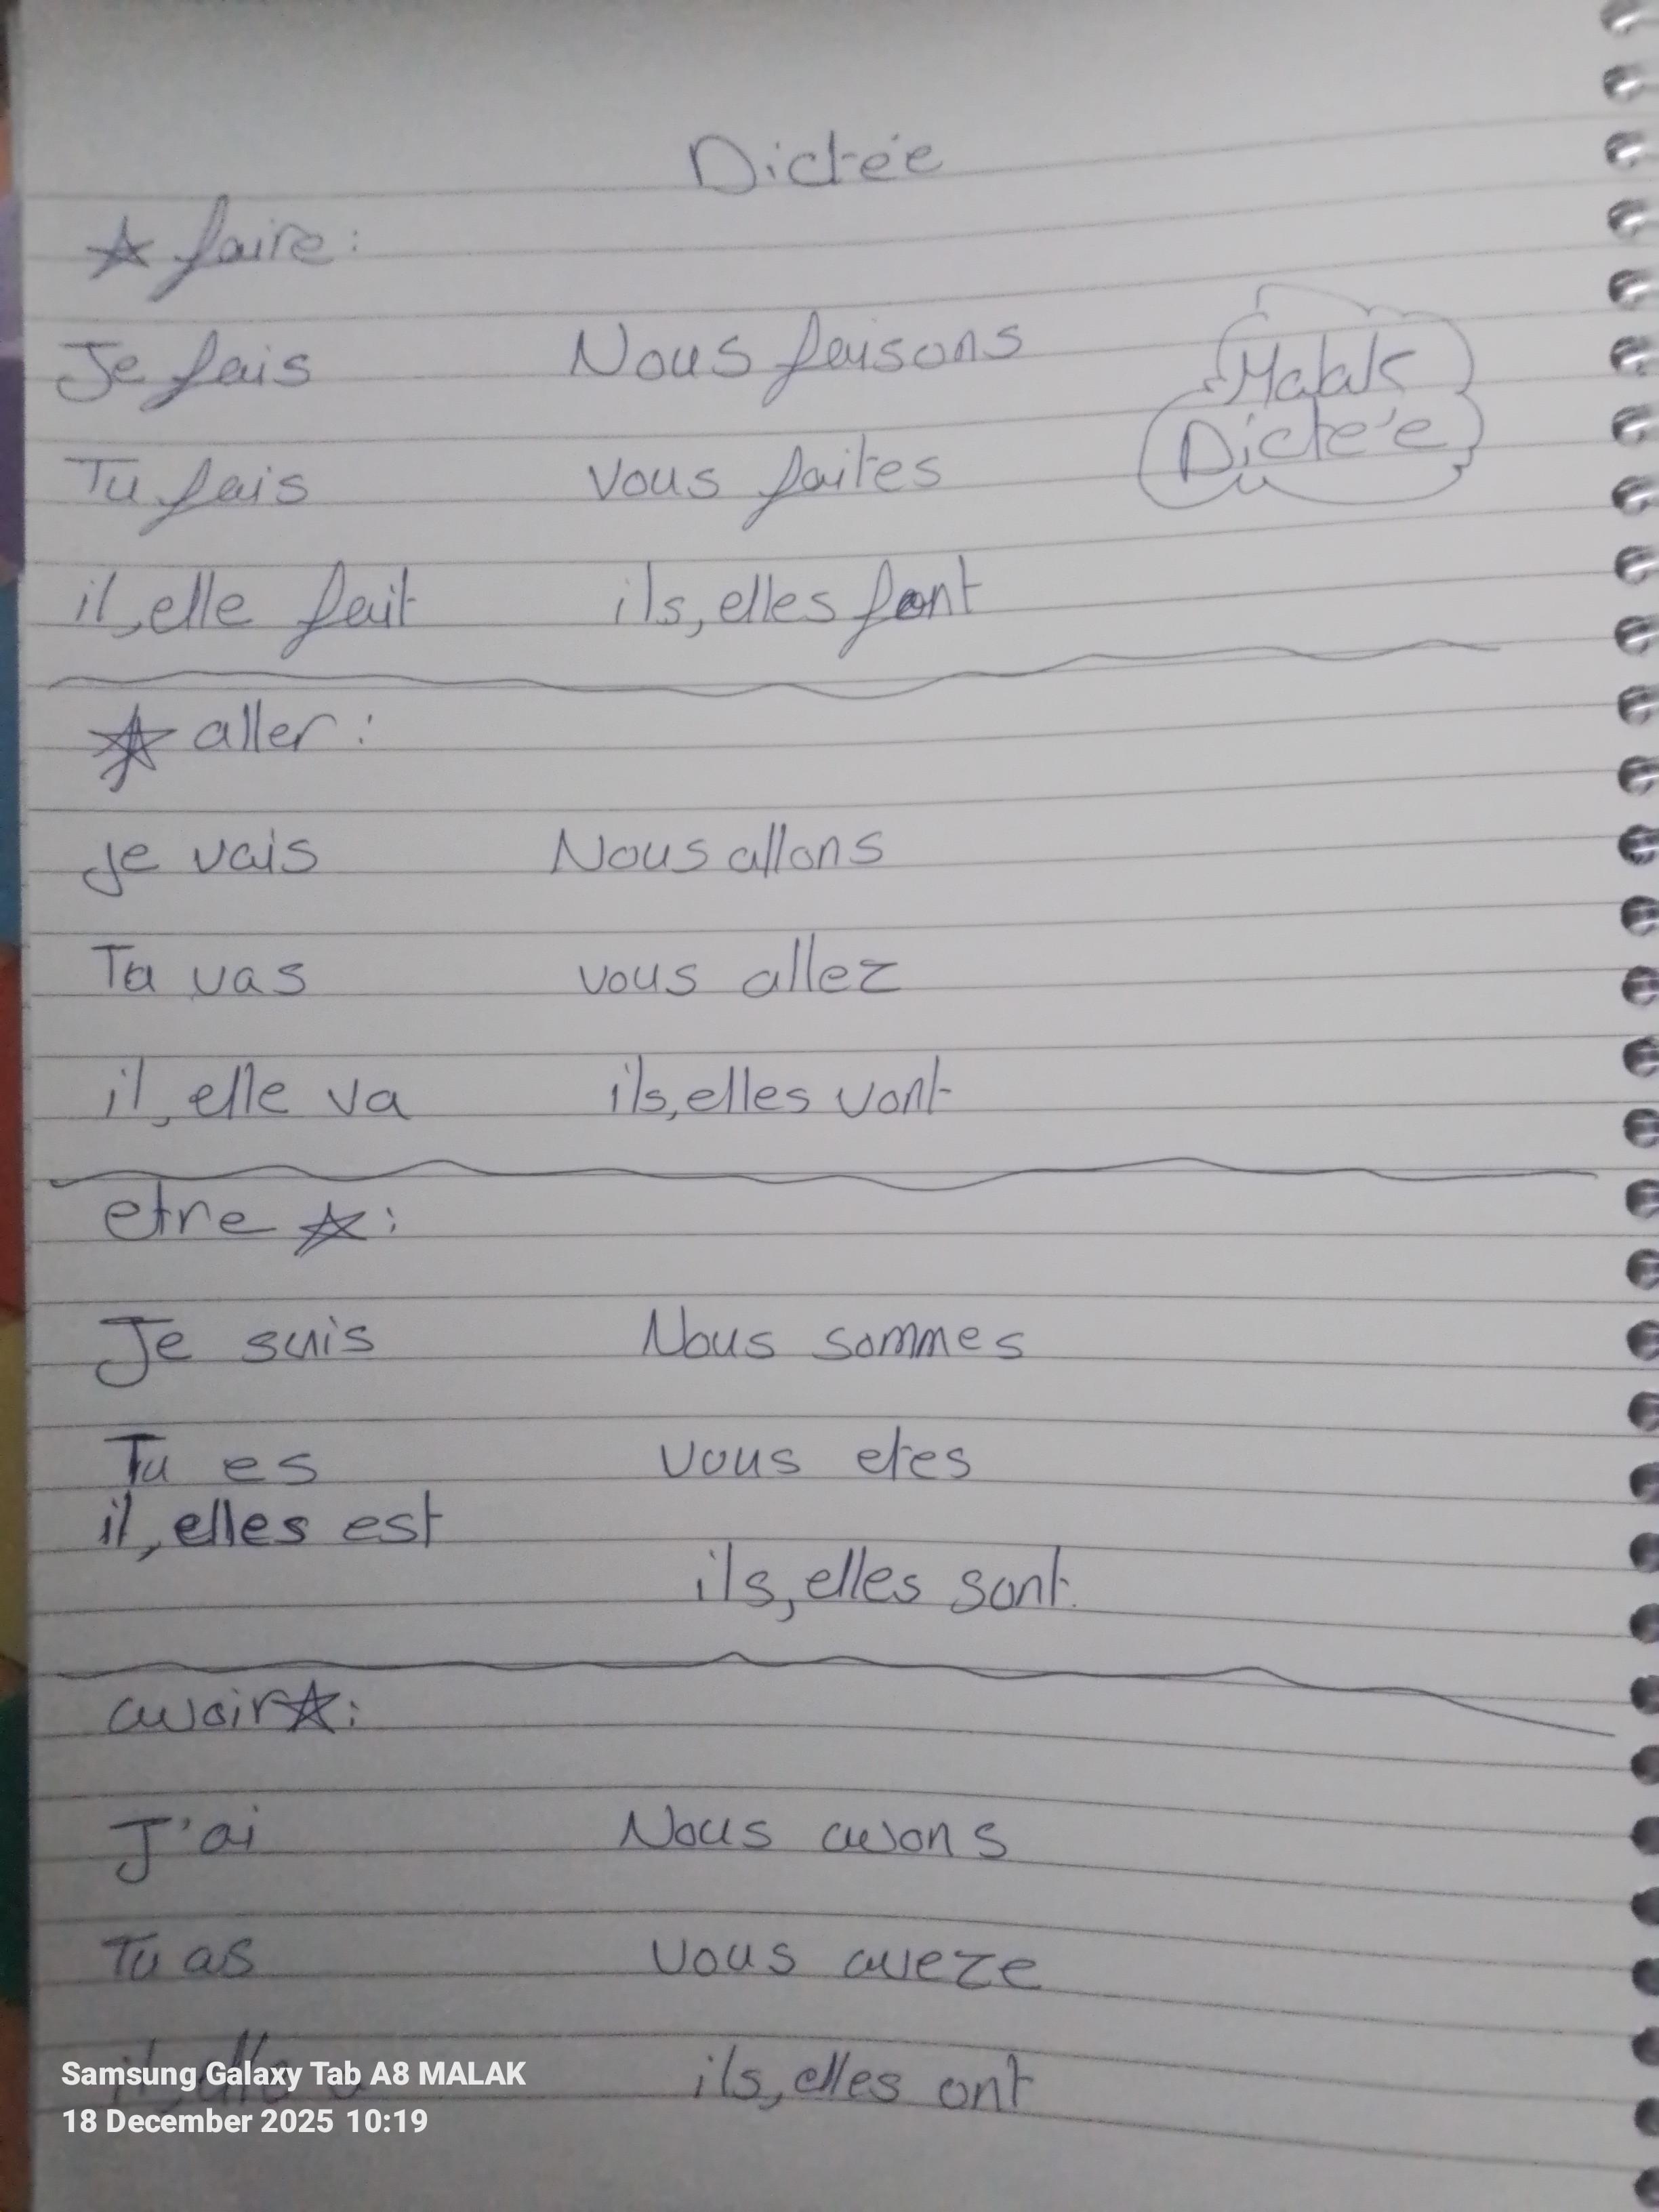 Dictée
☆ faire:
Je fais Nous faisons
Malak
Dictée
Tu fais vous faites
il,elle fait ils,elles font
☆ aller:
je vais Nous allons
Tu vas vous allez
il,elle va ils,elles vont
etre ☆:
Je suis Nous sommes
Tu es vous etes
il,elles est
ils,elles sont.
avoir☆:
J'ai Nous avons
Tu as vous aveze
il,elle a ils,elles ont
Samsung Galaxy Tab A8 MALAK
18 December 2025 10:19